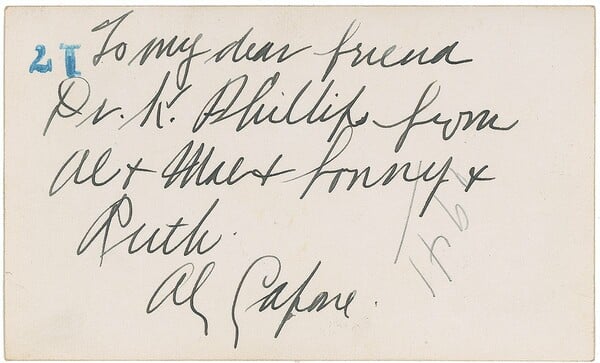 To my dear friend
Dr. K. Phillips from
Al + Mae + Sonny +
Ruth.
Al Capone.